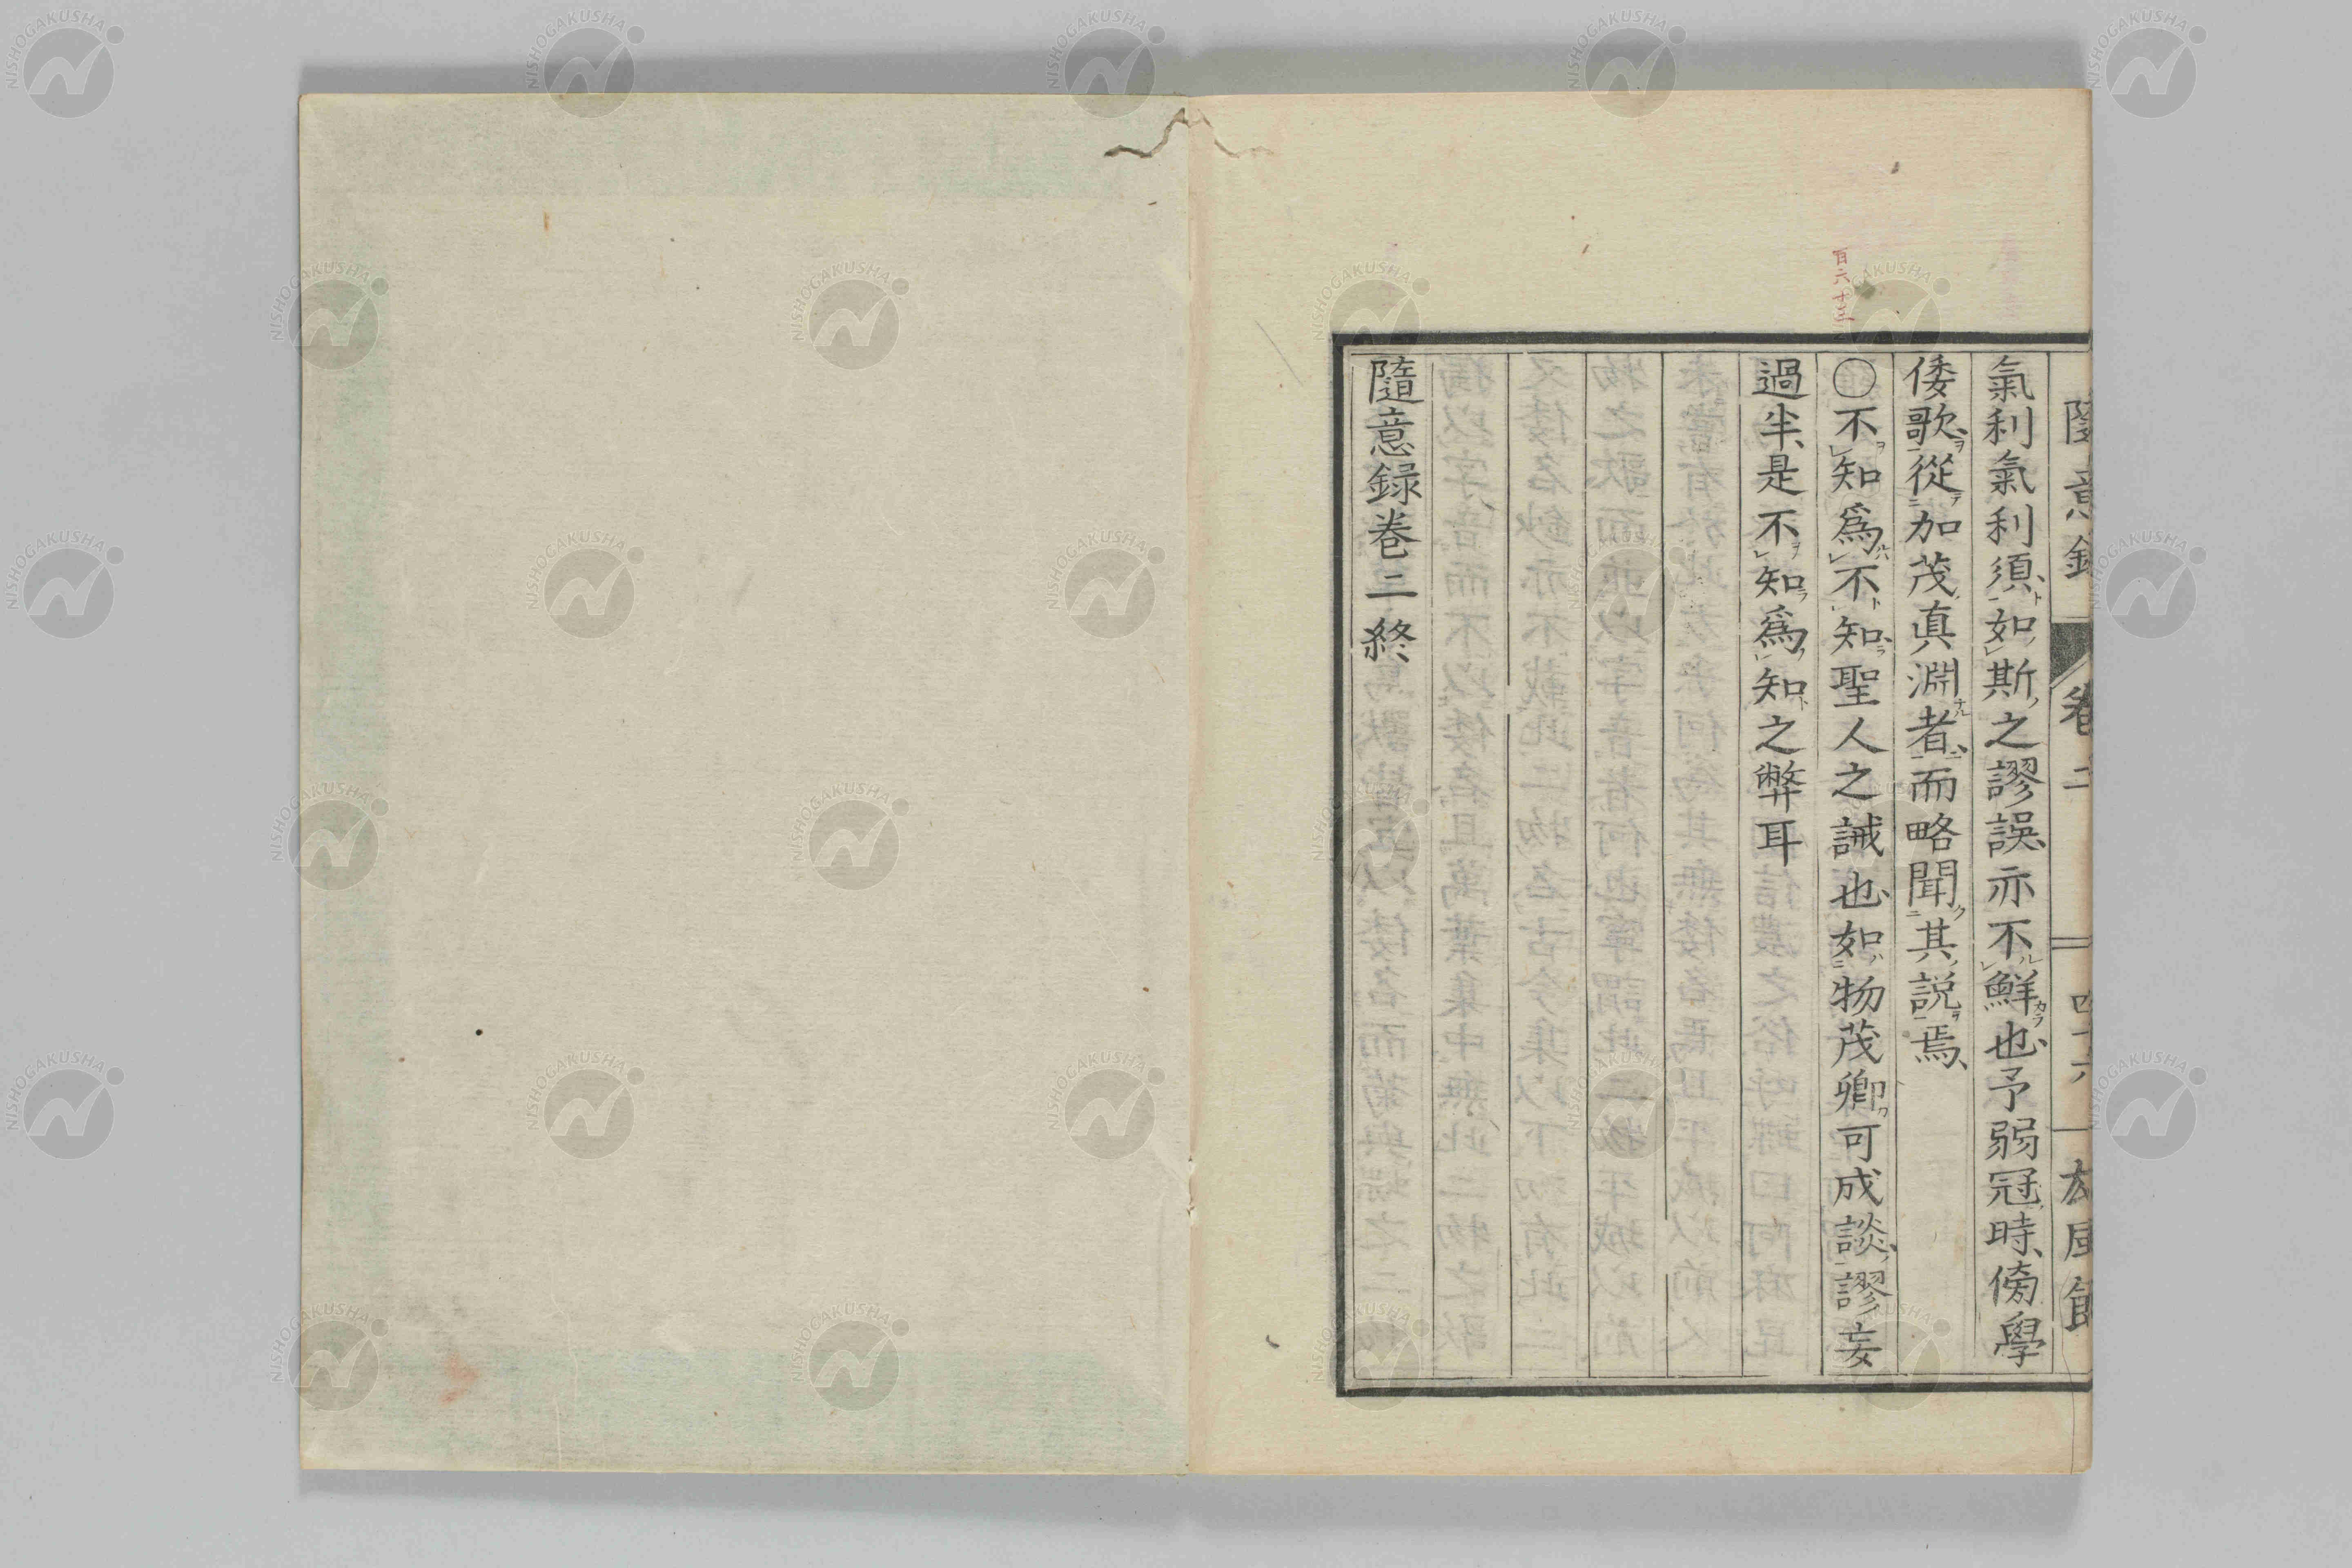 氣利氣利須如斯之謬誤亦不鮮也予弱冠時傍學
倭歌從加茂真淵者而略聞其説焉
百六十三
〇不知爲不知聖人之誡也如物茂卿可成談謬妄
過半是不知爲知之弊耳
隨意録卷二終
隨意録 卷二 四十六
NISHOGAKUSHA